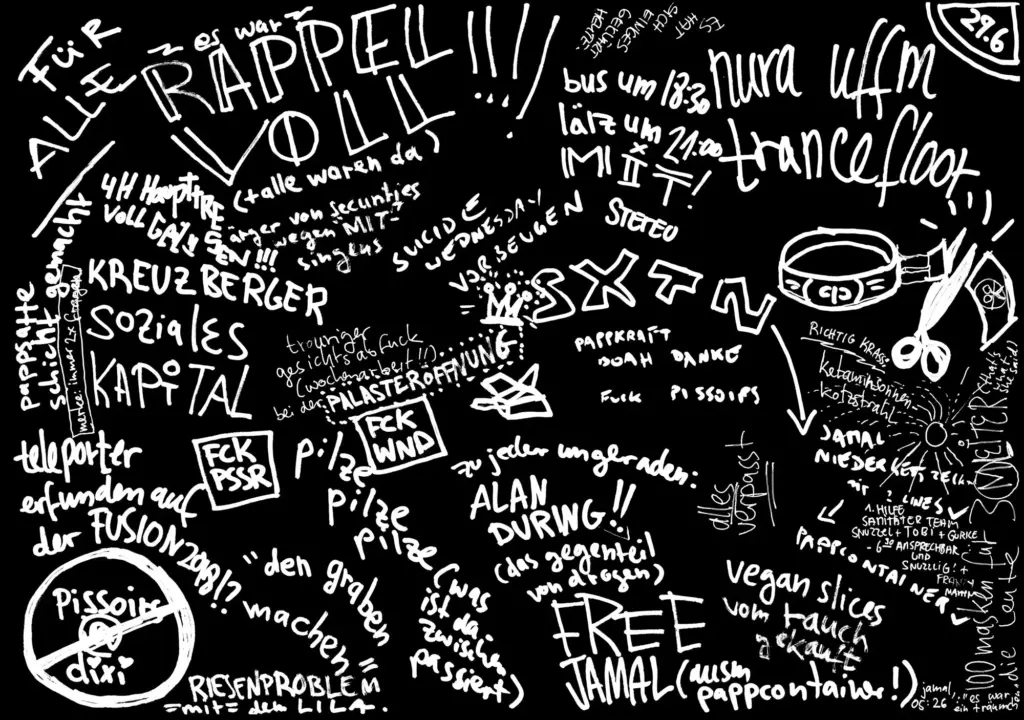 FÜR
ALLE
~ es war ~
RAPPEL!!!!
VOLL
(+alle waren da)
ES HAT
SICH
EINGES
GELOHNT
HEUTE.
29.6
bus um 18:30
lärz um 21:00
MIIT!
STEFFU
nura uffm
trancefloor
4H Hauptref
VOLL GAY
GEN!!!
ärger von securities
wegen MIT-
singens
SUICIDE
WEDNESDAY
VORBEUGEN
pappsatte
schicht gemacht
merke: immer 2x fragen
KREUZBERGER
SOZIALES
KAPITAL
trauriger
gesichtsabfuck
(wochenarbeit!!)
bei der PALASTERÖFFNUNG
SXTN
PAPPKRAFT
DOAH DANKE
FUCK PISSOIRS
RICHTIG KRASS
ketaminsonnen-
kotzstrahl
teleporter
erfunden auf
der FUSION2018!?
FCK
PSSR
FCK
WND
pilze
pilze
pilze
(was
ist da
zwischen
passiert)
zu jeder ungeraden:
ALAN
DURING!!
(das gegenteil
von drogen)
alles
verpasst
JAMAL
NIEDERKETZELN
mit 2 LINES
1. HILFE
SANITÄTER TEAM
SNUZZEL + TOBI + GURKE
-6:30 ANSPRECHBAR
UND
SNUZZLIG! +
PAPPCONTAINER
100 masken für 30 METER
die leute
(that's what
she said)
pissoir
dixi
"den graben
machen"
RIESENPROBLEM
=mit= dem LILA.
FREE
JAMAL (ausm
pappcontainer!)
vegan slices
vom rauch
gekauft
jamal,
05:26
"es war
ein traum"